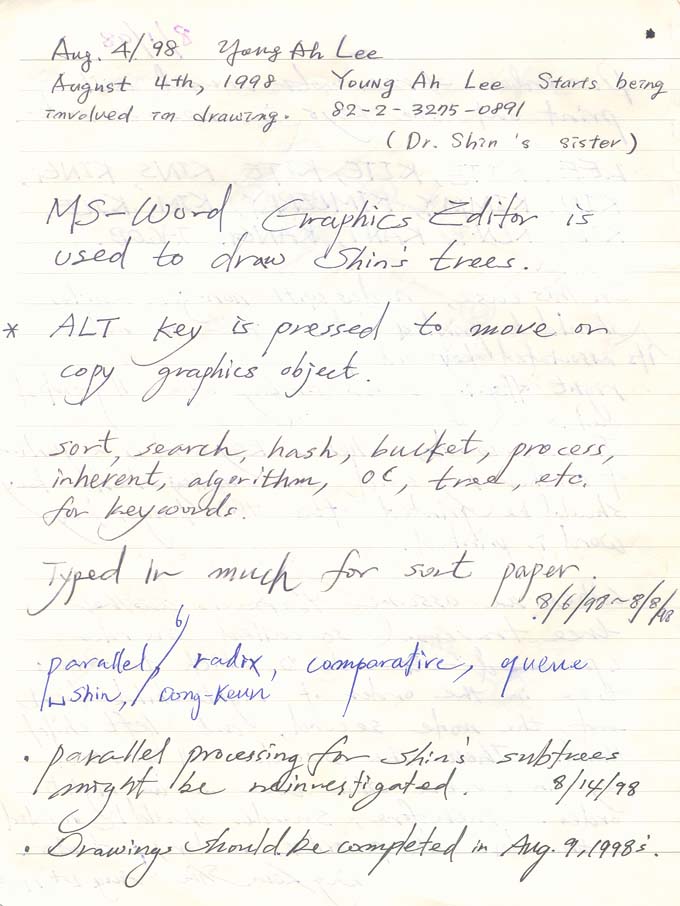 Aug. 4/'98 Young Ah Lee
August 4th, 1998 Young Ah Lee Starts being
involved in drawing. 82-2-3275-0891
(Dr. Shin's sister)
MS-Word Graphics Editor is
used to draw Shin's trees.
* ALT key is pressed to move or
copy graphics object.
sort, search, hash, bucket, process,
inherent, algorithm, OC, tree, etc.
for keywords.
Typed in much for sort paper.
8/6/98~8/8/98
6
parallel, radix, comparative, queue
Shin, Dong-Keun
• parallel processing for Shin's subtrees
might be reinvestigated. 8/14/98
• Drawings should be completed in Aug. 9, 1998's.